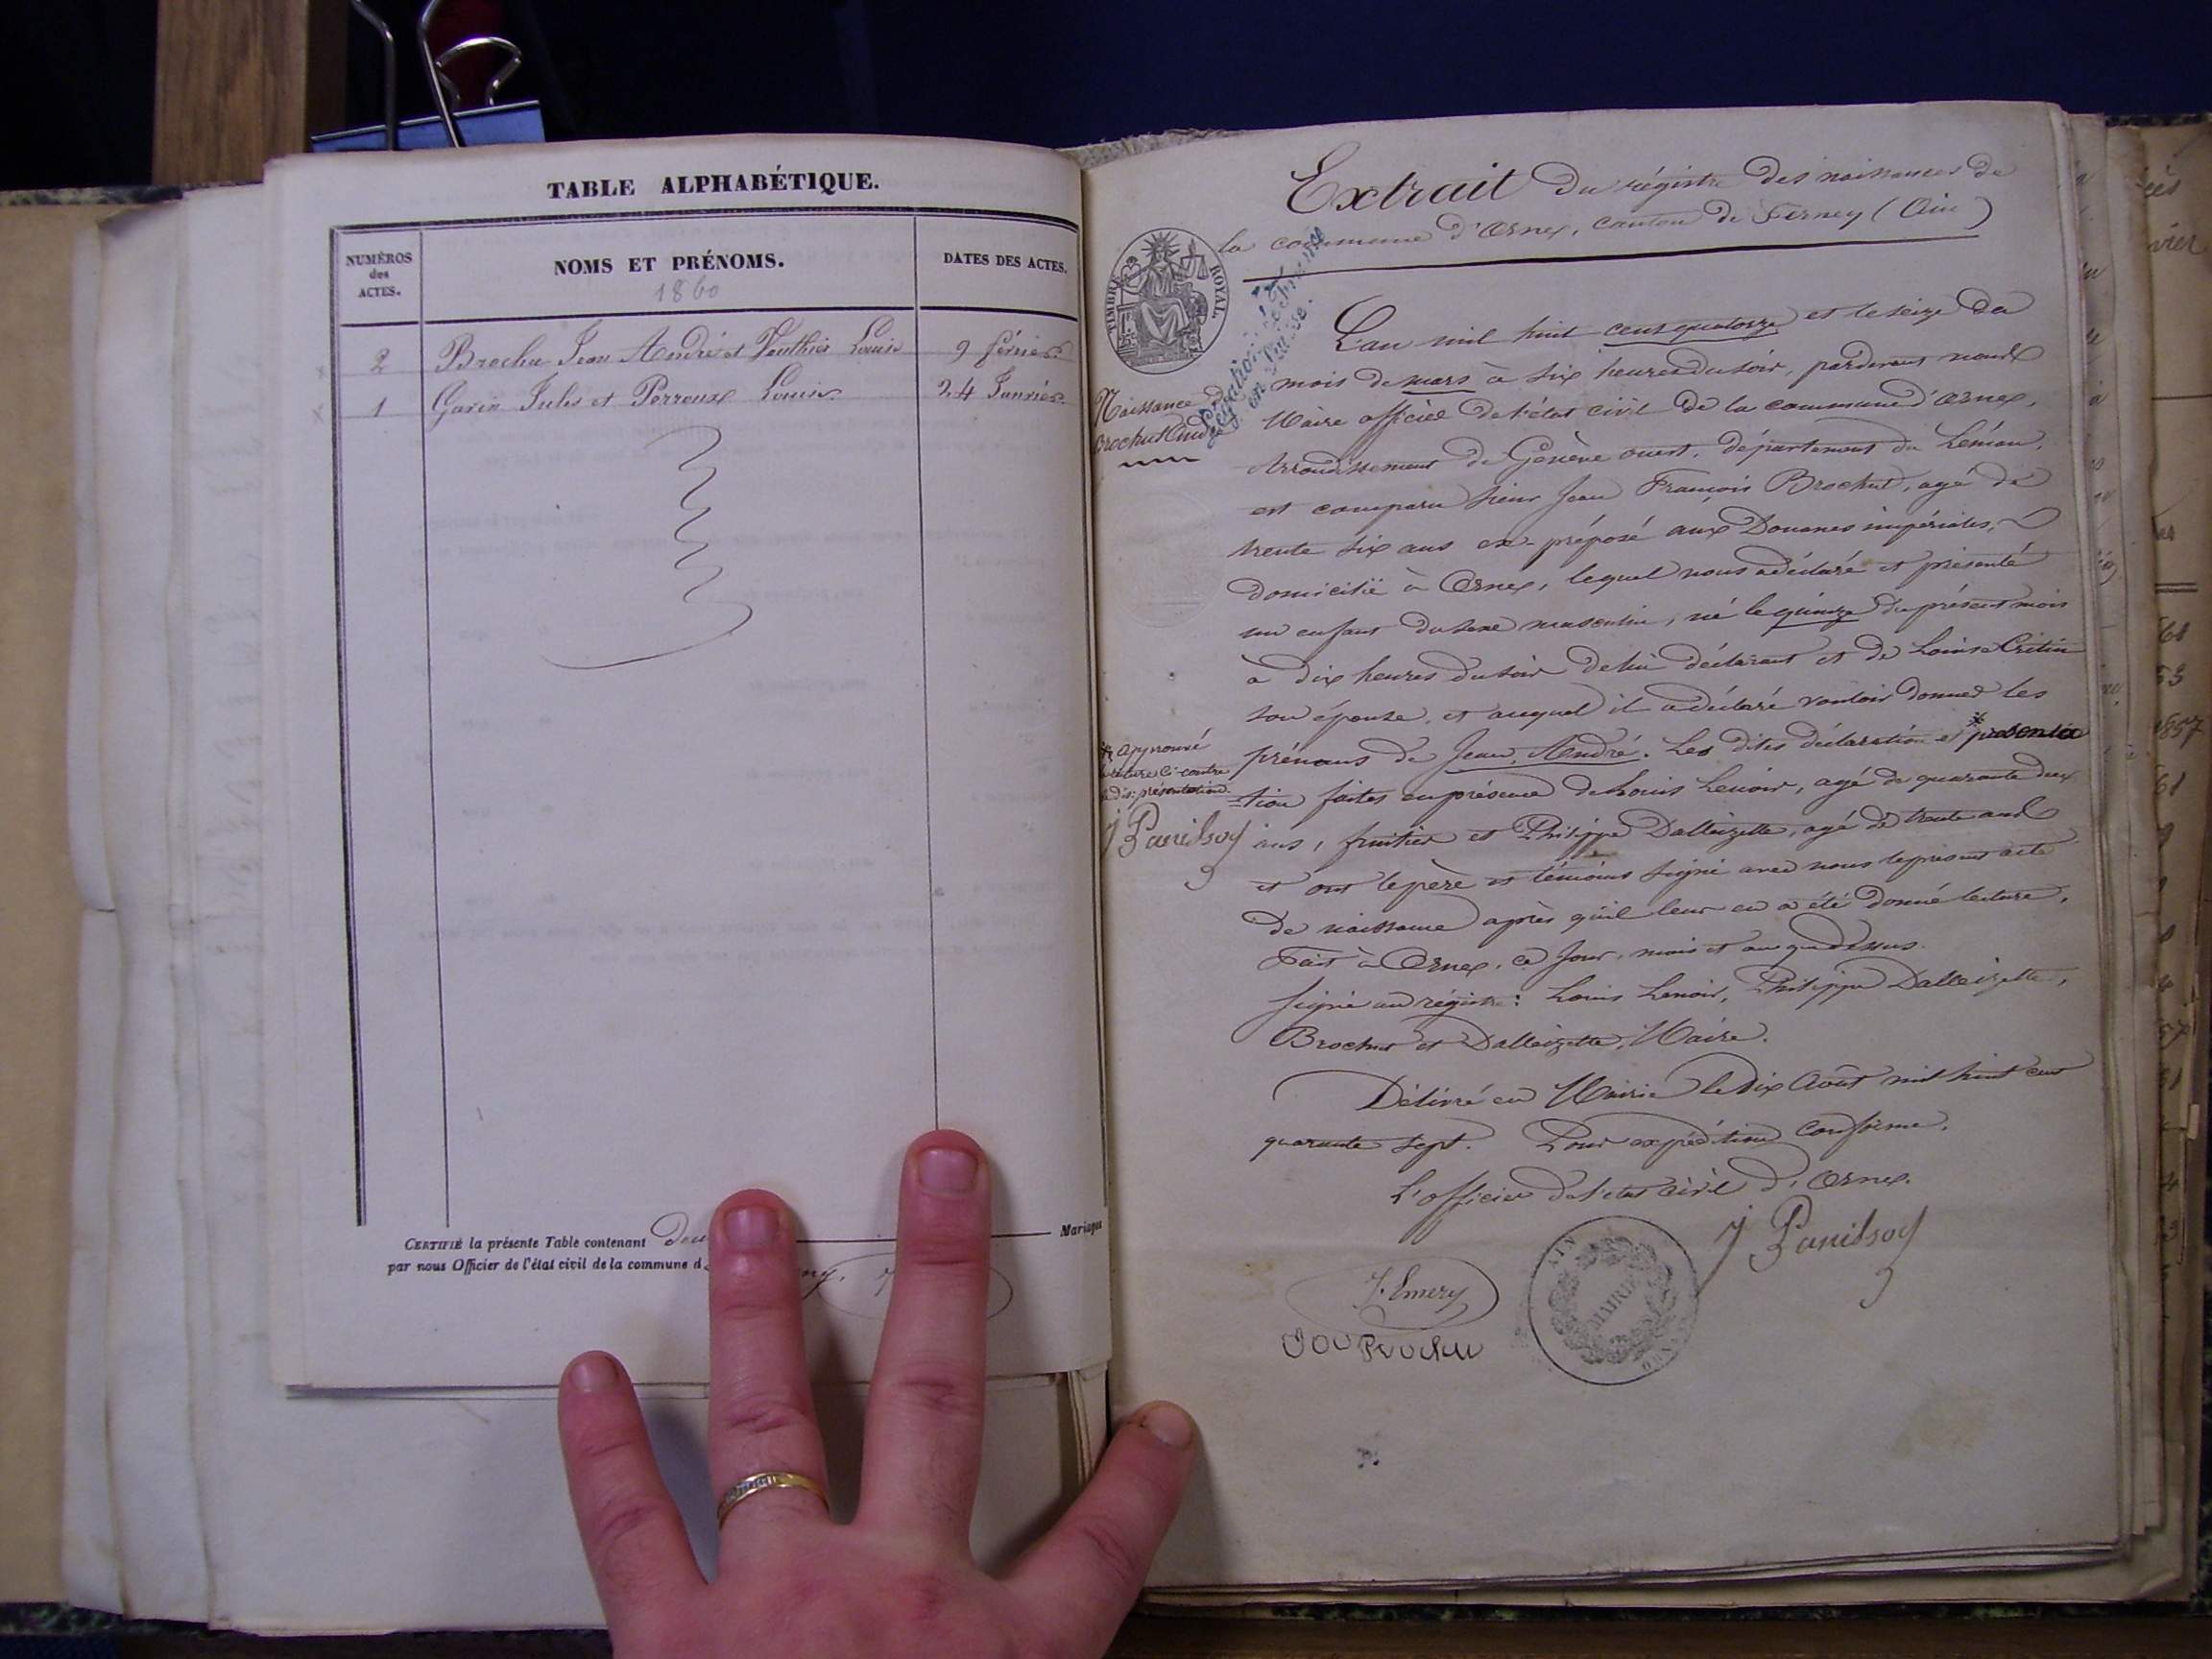 TABLE ALPHABÉTIQUE.
NUMÉROS
des
ACTES.
NOMS ET PRÉNOMS.
1860
DATES DES ACTES.
2 Brochu Jean André et Vauthier Louise 9 février
1 Gavin Jules et Perroux Louise 24 Janvier
CERTIFIÉ la présente Table contenant deu Mariages
par nous Officier de l'état civil de la commune d
Extrait du régistre des naissances de
la commune d'Ornex, canton de Ferney (Ain)
TIMBRE ROYAL.
en Suisse.
Naissance de
Brochut André
L'an mil huit cent quatorze et le seize du
mois de mars à six heures du soir, pardevant nous
Maire officier de l'état civil de la commune d'Ornex,
Arrondissement de Genève ouest, département du Léman,
est comparu sieur Jean François Brochut, agé de
trente six ans ex-préposé aux Douanes impériales,
domicilié à Ornex, lequel nous a déclaré et présenté
un enfant du sexe masculin, né le quinze du présent mois
à dix heures du soir de lui déclarant et de Louise Critin
son épouse, et auquel il a déclaré vouloir donner les
prénoms de Jean, André. Les dites déclaration et * présenta
-tion faites en présence de Louis Lenoir, agé de quarante deux
ans, fruitier et Philippe Dalleizette, agé de trente ans
et ont le père et témoins signé avec nous le présent acte
de naissance après qu'il leur en a été donné lecture.
Fait à Ornex, ce jour, mois et an que dessus.
Signé au régistre: Louis Lenoir, Philippe Dalleizette,
Brochut et Dalleizette, Maire.
* Approuvé
ci-contre
présentation.
Délivré en Mairie le dix Août mil huit cent
quarante sept. Pour expédition conforme.
L'officier de l'état civil d'Ornex.
J. Emery
MAIRIE
AIN